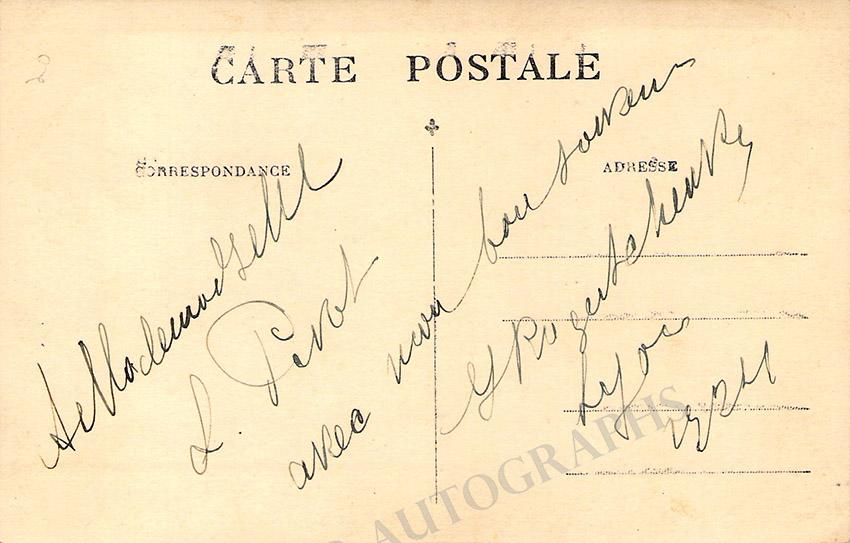 CARTE POSTALE
CORRESPONDANCE
ADRESSE
A Mademoiselle
L. Pivot
avec mon bon souvenir
Lyon
1924
AUTOGRAPHS